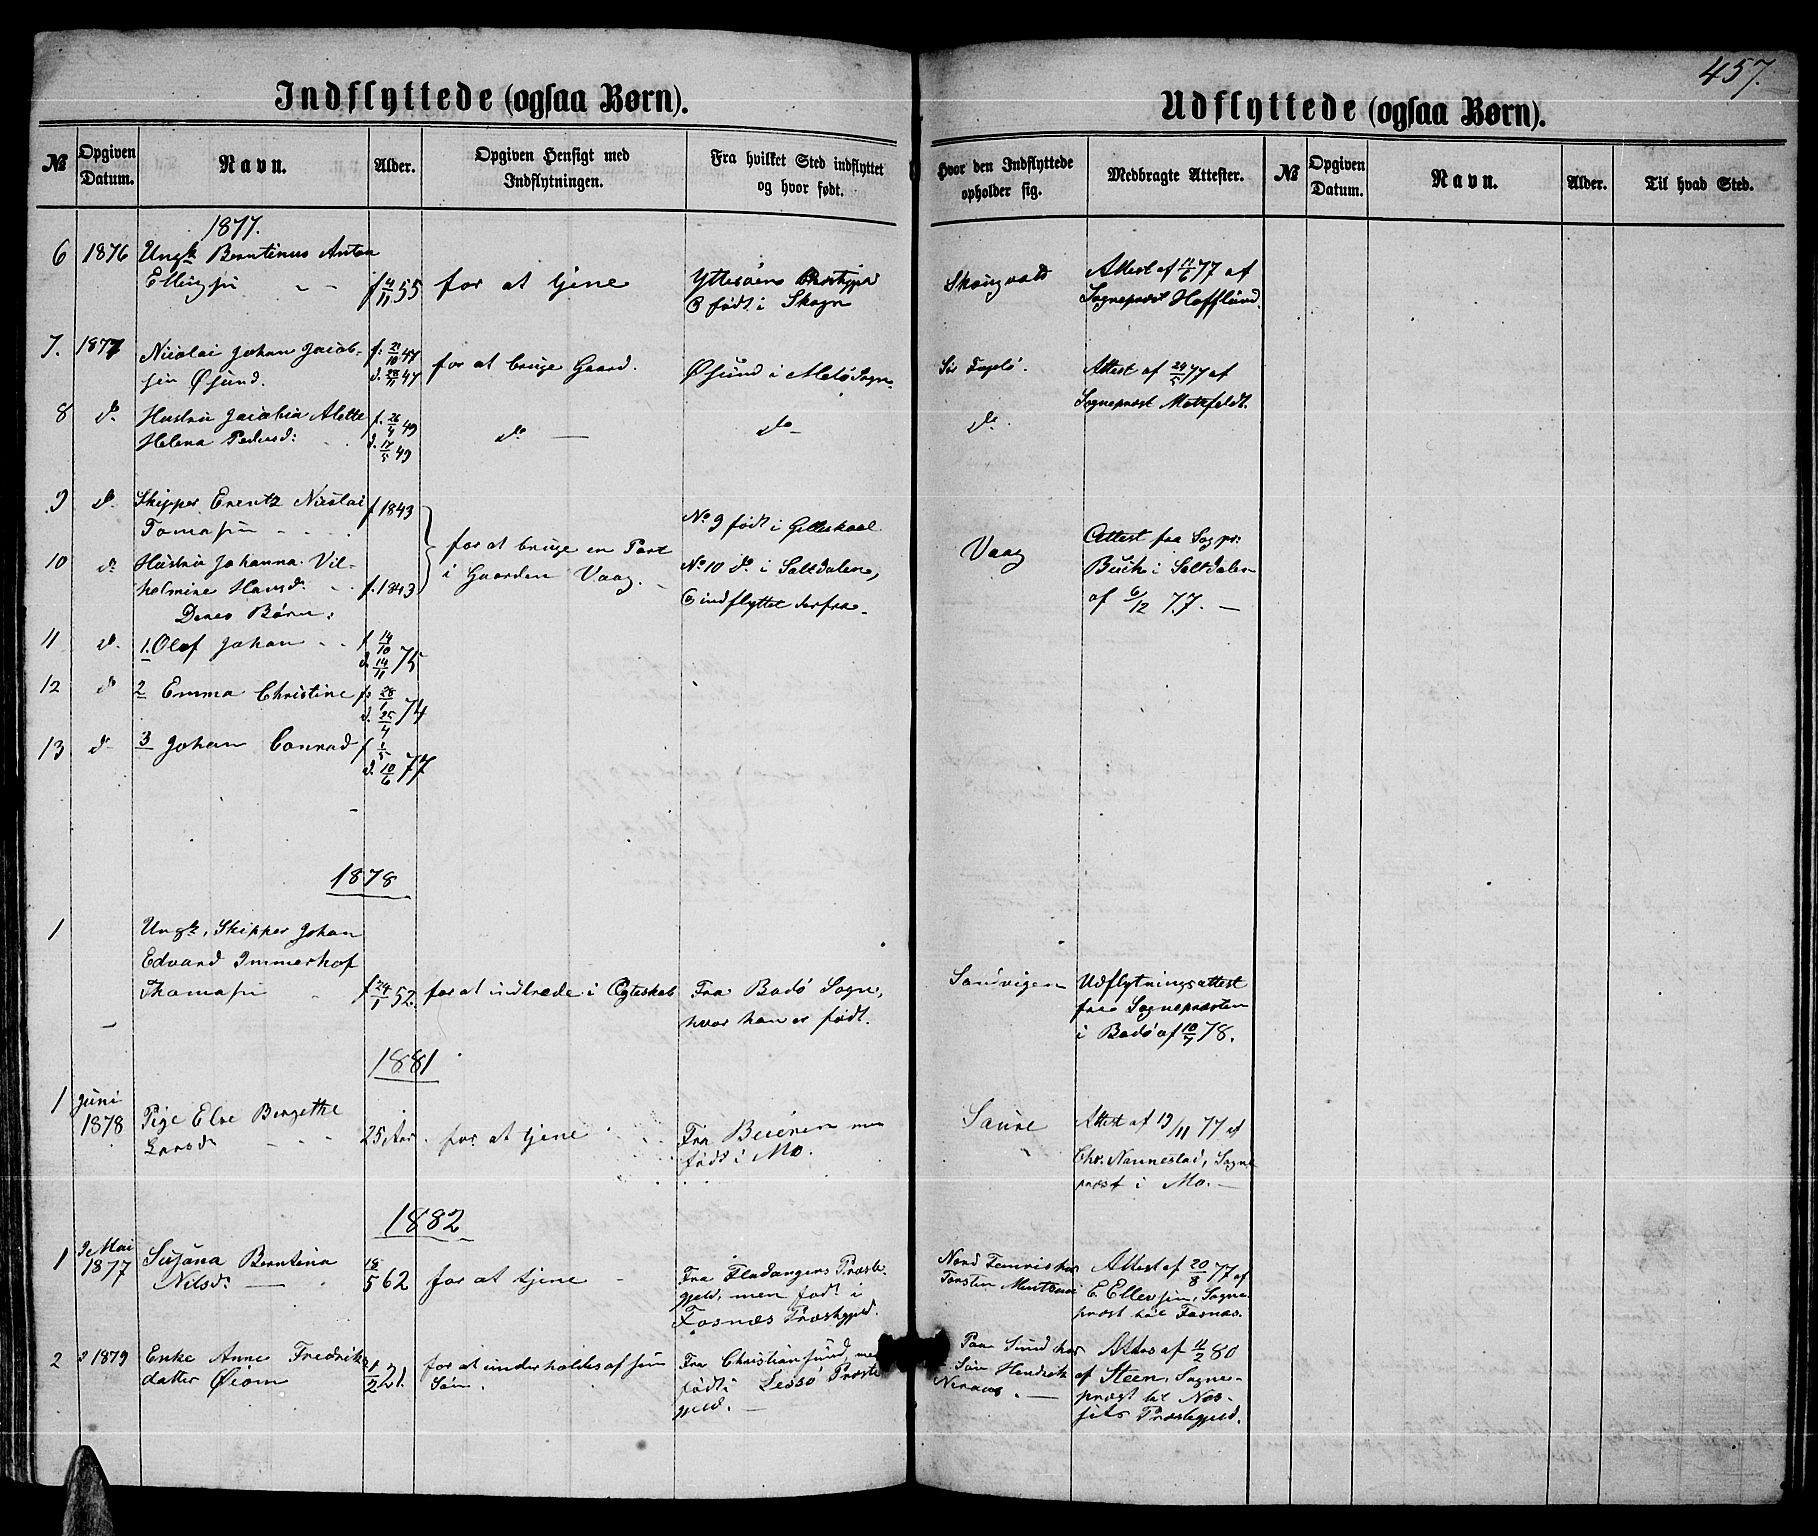 457.
Indflyttede (ogsaa Børn).
Udflyttede (ogsaa Børn).
№
Opgiven Datum.
Navn.
Alder.
Opgiven Hensigt med Indflytningen.
Fra hvilket Sted indflyttet og hvor født.
Hvor den Indflyttede opholder sig.
Medbragte Attester.
№
Opgiven Datum.
Navn.
Alder.
Til hvad Sted.
1877.
6 1876 Ungk Berntinus Anton
Ellingsen f 4/11 55 for at tjene
født i Skogn
Attest af 11/6 77 af
Sogneprest Hofflund.
7. 1877 Nicolai Johan Jacob-
sen Øsund. f. 21/10 47 d. 28/11 47
for at bruge Gaard.
Øsund i Melø Sogn
Attest af 29/5 77 af
Sogneprest Motzfeldt.
8 do Hustru Jacobia Alette
Helena Pedersd: f. 26/4 49 d. 17/5 49
do — do — do
9 do Skipper Erentz Nicolai
Tomassen f 1843
No 9 født i Gilleskaal
10 do Hustru Johanna Vil-
helmine Hansd. f. 1843
for at bruge en Part
i Gaarden Vaag.
No 10 do i Saltdalen,
indflyttet derfra.
Vaag
Attest fra Sogpr:
Busch i Saltdalen
af 6/12 77.
Deres Børn:
11 do 1. Olaf Johan f 14/10 d. 14/11 75
12 do 2 Emma Christine f: 28/1 d. 25/4 74
13 do 3 Johan Conrad f 1/5 d. 10/6 77
1878
1 Ungk, Skipper Johan
Edvard Immerhof
Thomassen f 24/1 52.
for at indtræde i Egteskab
Fra Bodø Sogn,
hvor han er født.
Sandvigen
Udflytningsattest
fra Sognepræsten
i Bodø af 10/7 78.
1881
1 Juni
1878 Pige Else Bergethe
Larsd 25 Aar. for at tjene
Fra Beieren men
født i Mo.
Saure
Attest af 13/11 77 af
Chr. Nannestad, Sogne
præst i Mo.
1882
1 9 Mai
1877 Susana Berntina
Nilsd: 18/5 62 for at tjene
Fra Fladangers Præste-
gjeld, men født i
Fosnæs Præstegjeld.
Torsten
Attest af 20/8 77 af
E. Ellevsen, Sogne
præst til Fosnæs.
2 1879 Enke Anne Fredriks
datter Øiom 1/2 21.
for at underholdes af sin
Søn.
Fra Christiansund, men
født i Lesso Præste
gjeld.
Paa Sund hos
Søn Hendrik
Attest af 11/2 80
af Steen, Sogne-
præst til Nes-
sets Præstegjeld.